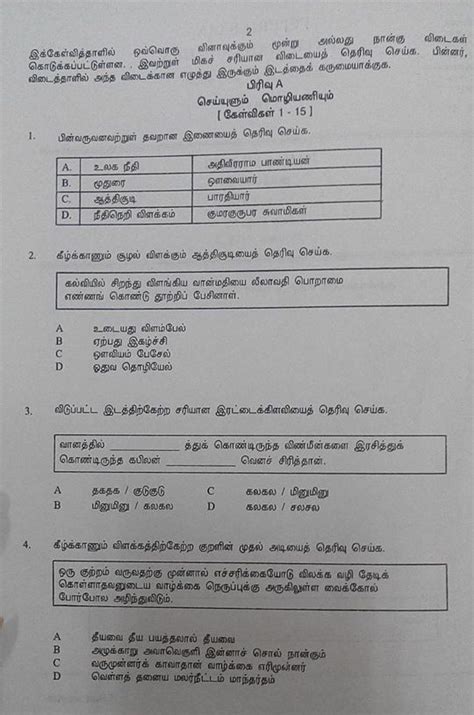 2
இக்கேள்வித்தாளில் ஒவ்வொரு வினாவுக்கும் மூன்று அல்லது நான்கு விடைகள்
கொடுக்கப்பட்டுள்ளன. . இவற்றுள் மிகச் சரியான விடையைத் தெரிவு செய்க. பின்னர்,
விடைத்தாளில் அந்த விடைக்கான எழுத்து இருக்கும் இடத்தைக் கருமையாக்குக.
பிரிவு A
செய்யுளும் மொழியணியும்
[ கேள்விகள் 1 - 15 ]
1. பின்வருவனவற்றுள் தவறான இணையைத் தெரிவு செய்க.
A. உலக நீதி அதிவீரராம பாண்டியன்
B. மூதுரை ஔவையார்
C. ஆத்திசூடி பாரதியார்
D. நீதிநெறி விளக்கம் குமரகுருபர சுவாமிகள்
2. கீழ்க்காணும் சூழல் விளக்கும் ஆத்திசூடியைத் தெரிவு செய்க.
கல்வியில் சிறந்து விளங்கிய வான்மதியை லீலாவதி பொறாமை
எண்ணங் கொண்டு தூற்றிப் பேசினாள்.
A உடையது விளம்பேல்
B ஏற்பது இகழ்ச்சி
C ஔவியம் பேசேல்
D ஓதுவ தொழியேல்
3. விடுபட்ட இடத்திற்கேற்ற சரியான இரட்டைக்கிளவியைத் தெரிவு செய்க.
வானத்தில் ____________ த்துக் கொண்டிருந்த விண்மீன்களை இரசித்துக்
கொண்டிருந்த கபிலன் ____________ வெனச் சிரித்தான்.
A தகதக / குடுகுடு C கலகல / மினுமினு
B மினுமினு / கலகல D கலகல / சலசல
4. கீழ்க்காணும் விளக்கத்திற்கேற்ற குறளின் முதல் அடியைத் தெரிவு செய்க.
ஒரு குற்றம் வருவதற்கு முன்னால் எச்சரிக்கையோடு விலக்க வழி தேடிக்
கொள்ளாதவனுடைய வாழ்க்கை நெருப்புக்கு அருகிலுள்ள வைக்கோல்
போர்போல அழிந்துவிடும்.
A தீயவை தீய பயத்தலால் தீயவை
B அழுக்காறு அவாவெகுளி இன்னாச் சொல் நான்கும்
C வருமுன்னர்க் காவாதான் வாழ்க்கை எரிமுன்னர்
D வெள்ளத் தனைய மலர்நீட்டம் மாந்தர்தம்